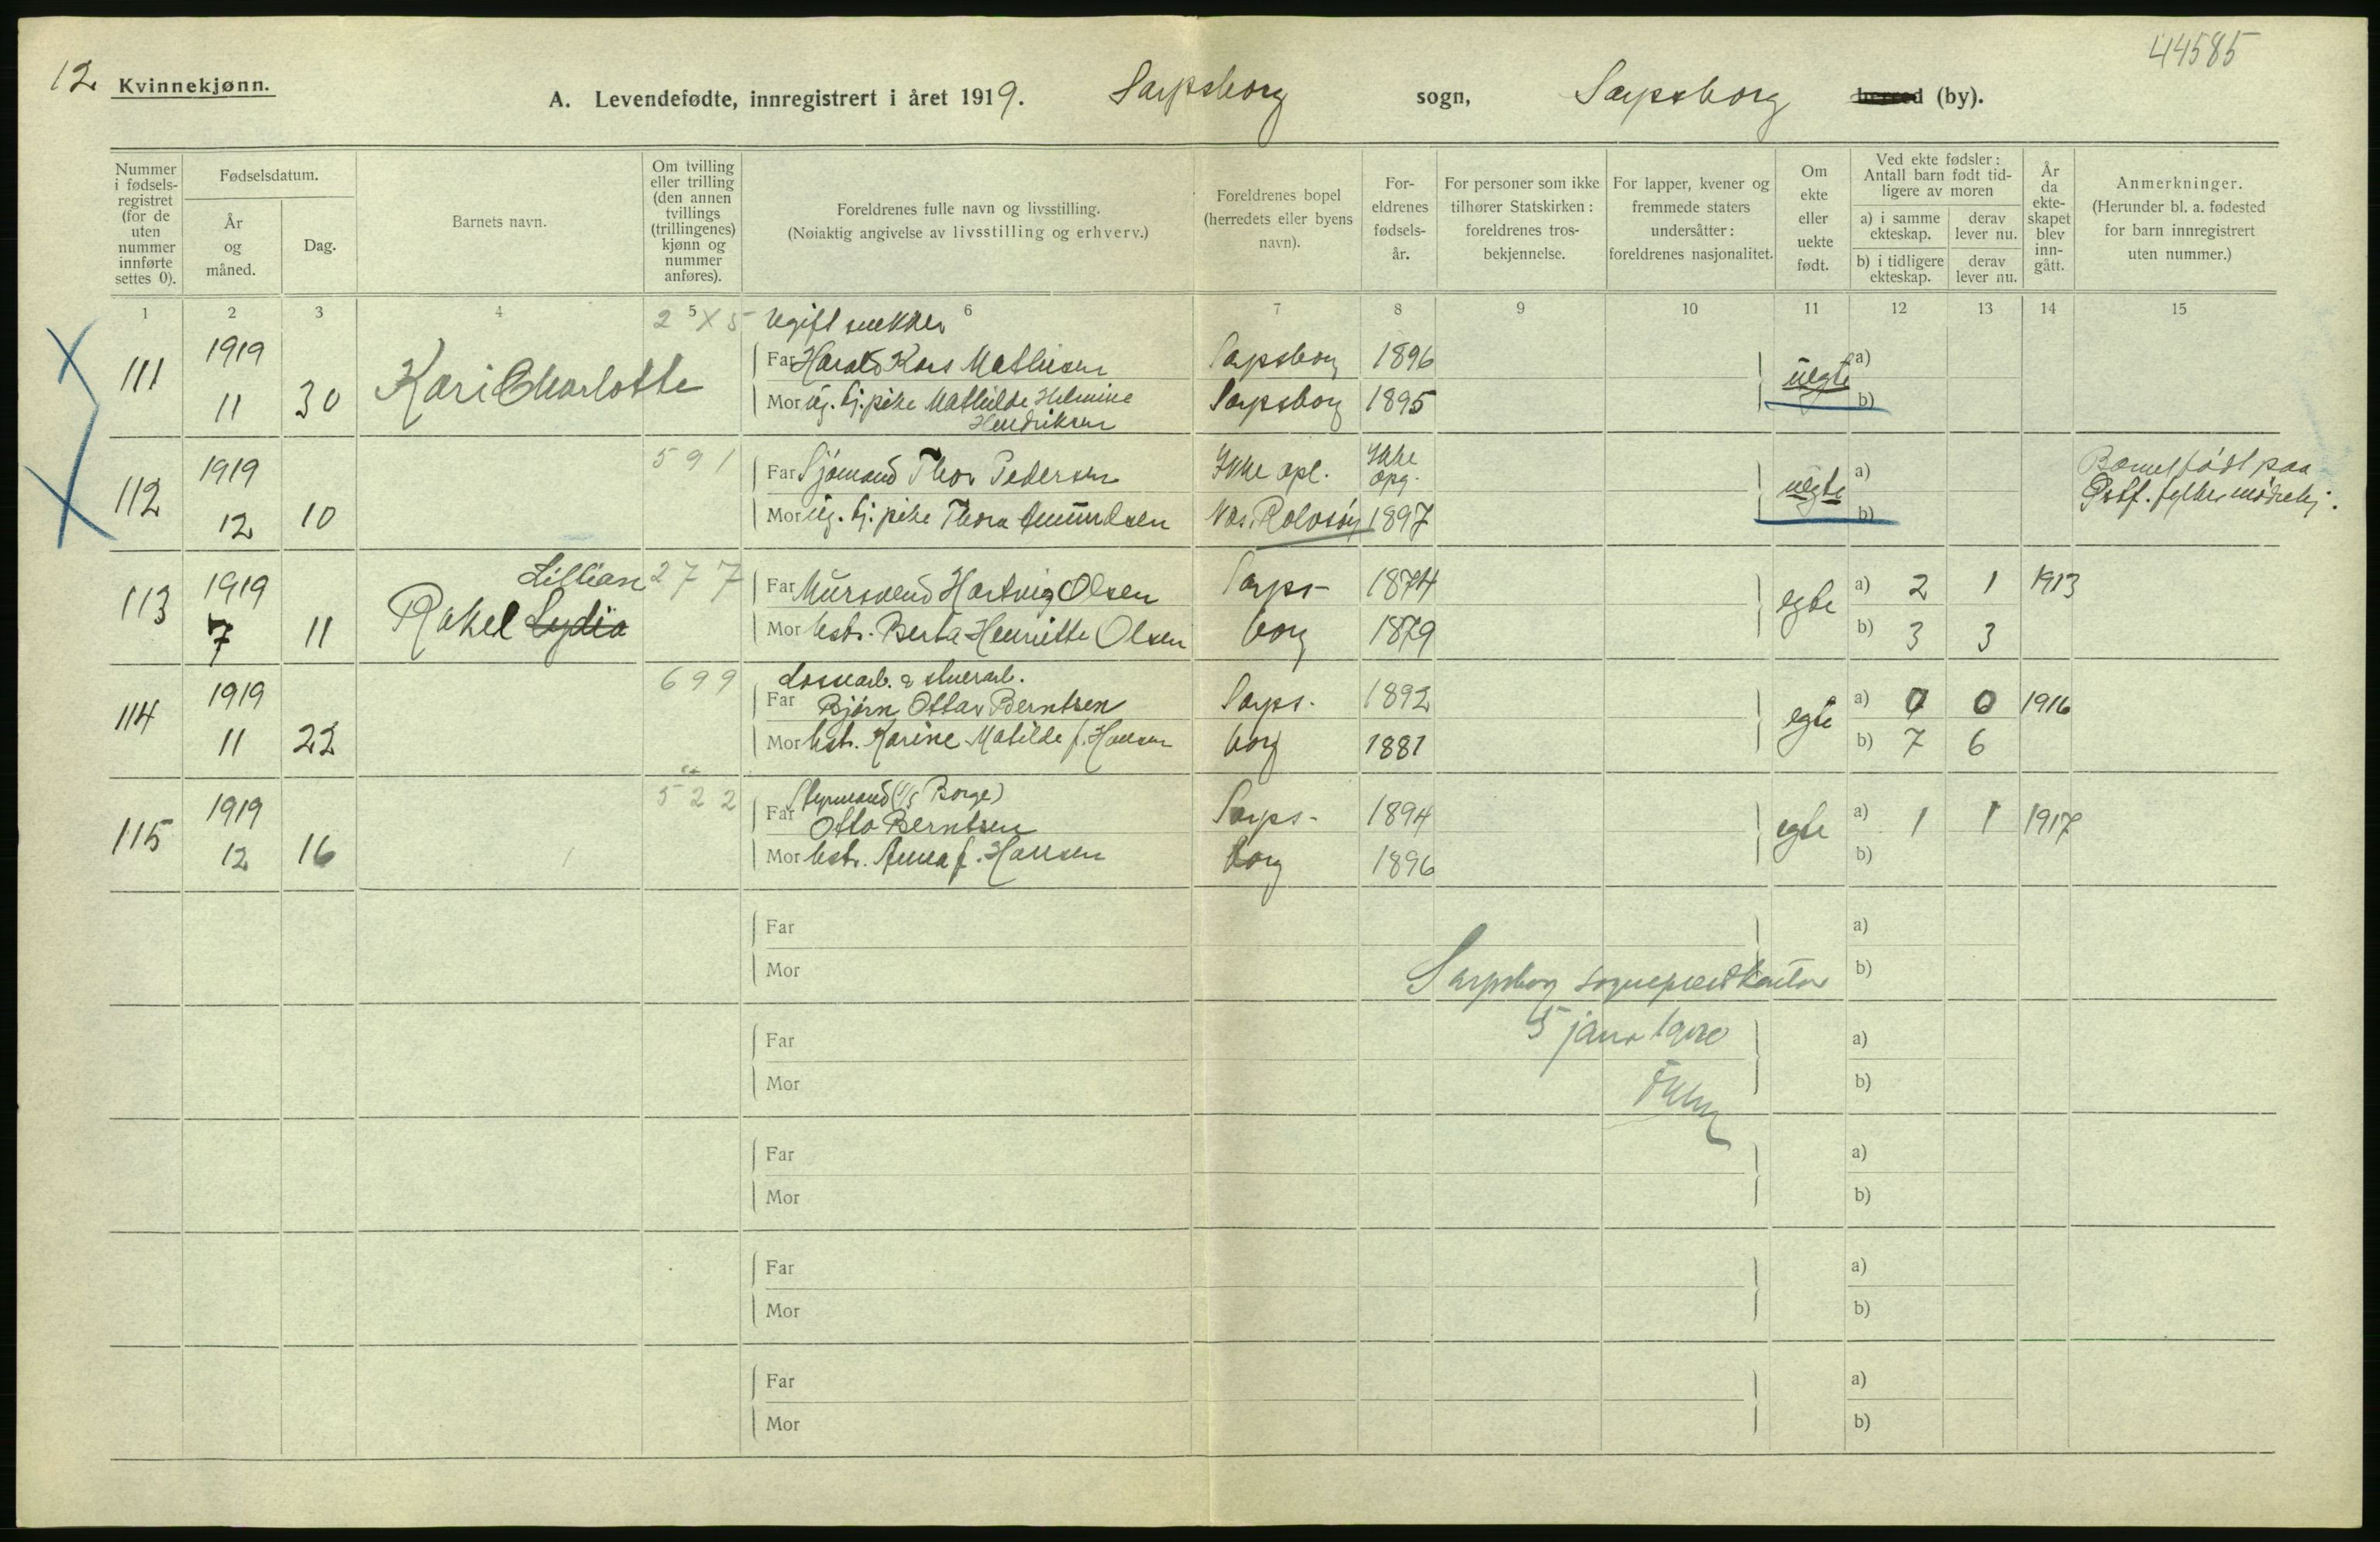 12 Kvinnekjønn.
44585
A. Levendefødte, innregistrert i året 1919. Sarpsborg sogn, Sarpsborg herred (by).
Nummer i fødsels-registret (for de uten nummer innførte settes 0).
Fødselsdatum.
År og måned.
Dag.
Barnets navn.
Om tvilling eller trilling (den annen tvillings (trillingenes) kjønn og nummer anføres).
Foreldrenes fulle navn og livsstilling.
(Nøiaktig angivelse av livsstilling og erhverv.)
Foreldrenes bopel (herredets eller byens navn).
For-eldrenes fødsels-år.
For personer som ikke tilhører Statskirken: foreldrenes tros-bekjennelse.
For lapper, kvener og fremmede staters undersåtter: foreldrenes nasjonalitet.
Om ekte eller uekte født.
Ved ekte fødsler: Antall barn født tid-ligere av moren
a) i samme ekteskap.
derav lever nu.
b) i tidligere ekteskap.
derav lever nu.
År da ekte-skapet blev inn-gått.
Anmerkninger.
(Herunder bl. a. fødested for barn innregistrert uten nummer.)
1 2 3 4 5 6 7 8 9 10 11 12 13 14 15
2 X 5 Ugift snekker
111 1919 Far Harald Kaas Mathisen Sarpsborg 1896 uegte a)
11 30 Kari Charlotte Mor ug. tj.pike Mathilde Helmine Sarpsborg 1895 b)
Hendriksen
112 1919 591 Far Sjømand Thor Pedersen Ikke opl. Ikke opg. uegte a) Barnet født paa
12 10 Mor ug. tj.pike Thora Amundsen Rolvsøy 1897 b) Østf. fylkes mødrehj.
Lillian 277
113 1919 Far Mursvend Hartvig Olsen Sarps- 1874 egte a) 2 1 1913
7 11 Rakel Lydia Mor hstr. Berta Henriette Olsen borg 1879 b) 3 3
699 Lossearb. & stuerarb.
114 1919 Far Bjørn Ottar Berntsen Sarps- 1892 egte a) 0 0 1916
11 22 Mor hstr. Karine Matilde f. Hansen borg 1881 b) 7 6
522 Styrmand (D/S Borge)
115 1919 Far Otto Berntsen Sarps- 1894 egte a) 1 1 1917
12 16 Mor hstr. Anna f. Hansen borg 1896 b)
Far a)
Mor b)
Sarpsborg sogneprestkontor
5 janr 1920
Far a)
Mor b)
Far a)
Mor b)
Far a)
Mor b)
Far a)
Mor b)